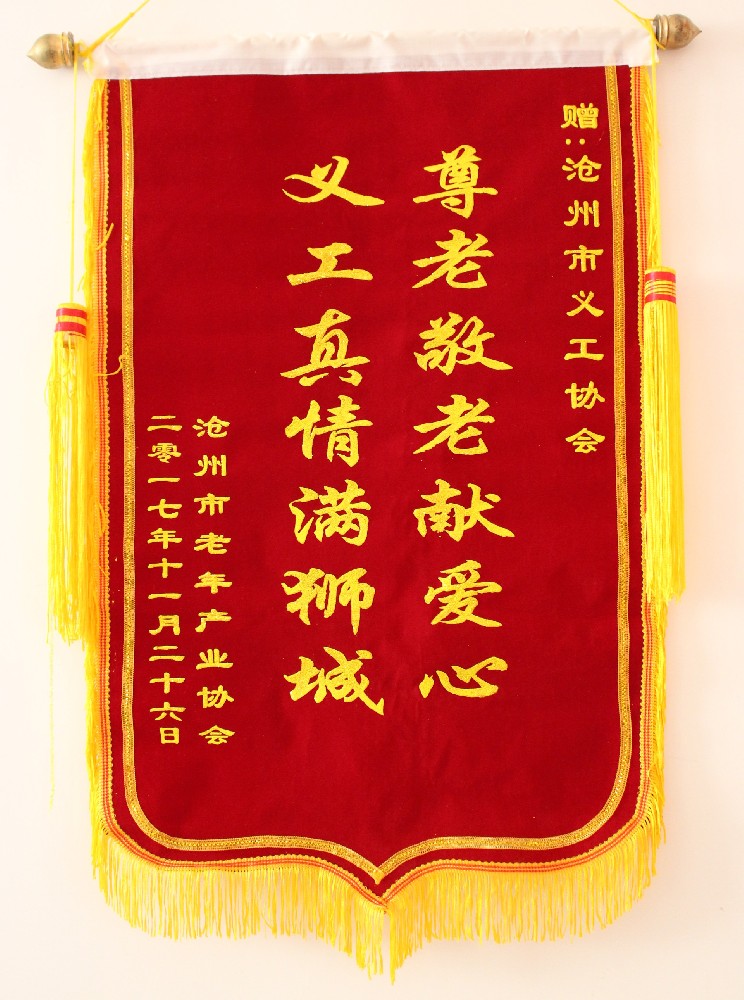 赠:沧州市义工协会
尊老敬老献爱心
义工真情满狮城
沧州市老年产业协会
二零一七年十一月二十六日